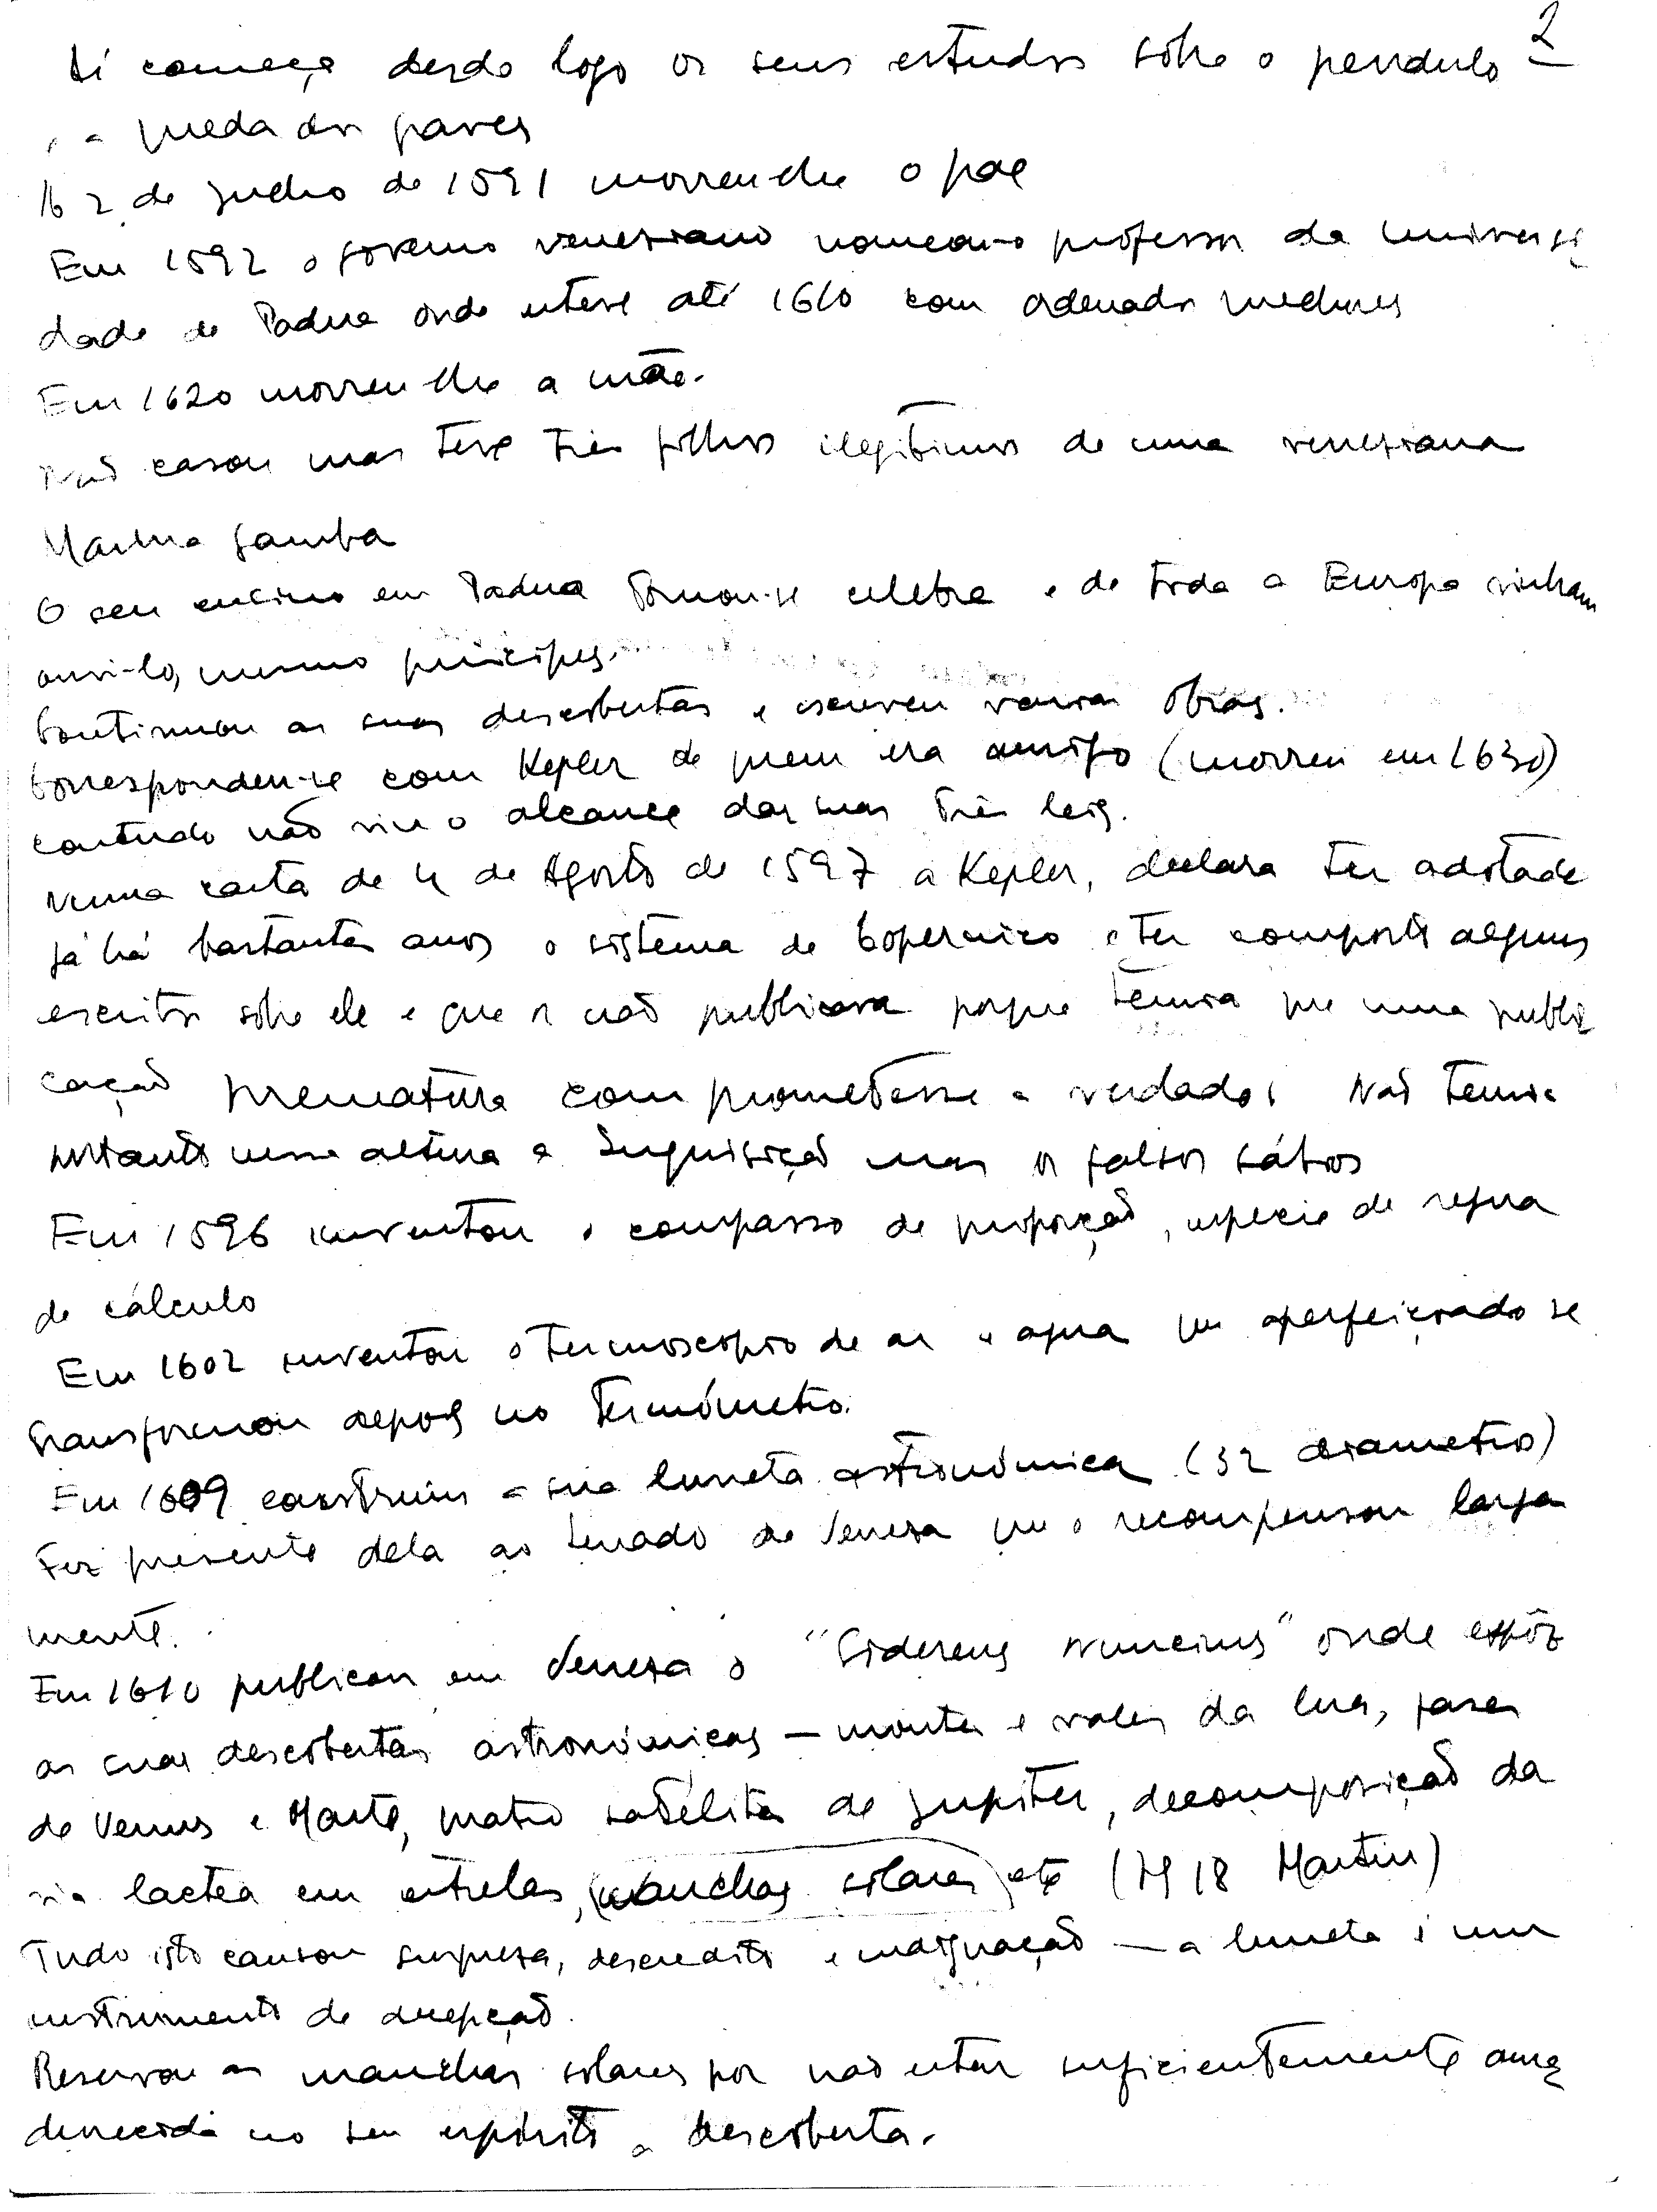 2
Lí começa desde logo os seus estudos sôbre o pendulo
e a queda dos graves
A 2 de Julho de 1591 morreu-lhe o pae
Em 1592 o governo veneziano nomeou-o professor da Universi
dade de Padua onde esteve até 1610 com ordenados melhores
Em 1620 morreu-lhe a mãe.
Não casou mas teve três filhos ilegítimos de uma veneziana
Marina Gamba
O seu ensino em Padua tornou-se celebre e de toda a Europa vinham
ouvi-lo, mesmo principes.
Continuou as suas descobertas e escreveu varias obras.
Correspondeu-se com Kepler de quem era amigo (morreu em 1630)
contudo não viu o alcance das suas três leis.
Numa carta de 4 de Agosto de 1597 a Kepler, declara ter adotado
já há bastantes anos o sistema de Copernico e ter composto alguns
escritos sôbre ele e que os não publicara porque temia que uma publi
cação prematura comprometesse a verdade. Não temia
portanto nessa altura a Inquisição mas os falsos sábios
Em 1596 inventou o compasso de proporção, especie de regua
de cálculo
Em 1602 inventou o termoscopio de ar e agua que aperfeiçoado se
transformou depois no termómetro.
Em 1609 construiu a sua luneta astronómica (32 diametros)
Fez presente dela ao Senado de Veneza que o recompensou larga
mente.
Em 1610 publicou em Veneza o "Sidereus Nuncius" onde expôz
as suas descobertas astronómicas — montes e vales da lua, fases
de Venus e Marte, quatro satélites de Jupiter, decomposição da
via lactea em estrelas, (manchas solares) etc (M 18 Martin)
Tudo isto causou surpresa, descredito e indignação — a luneta é um
instrumento de decepção.
Reservou as manchas solares por não estar suficientemente ama
durecida no seu espírito a descoberta.